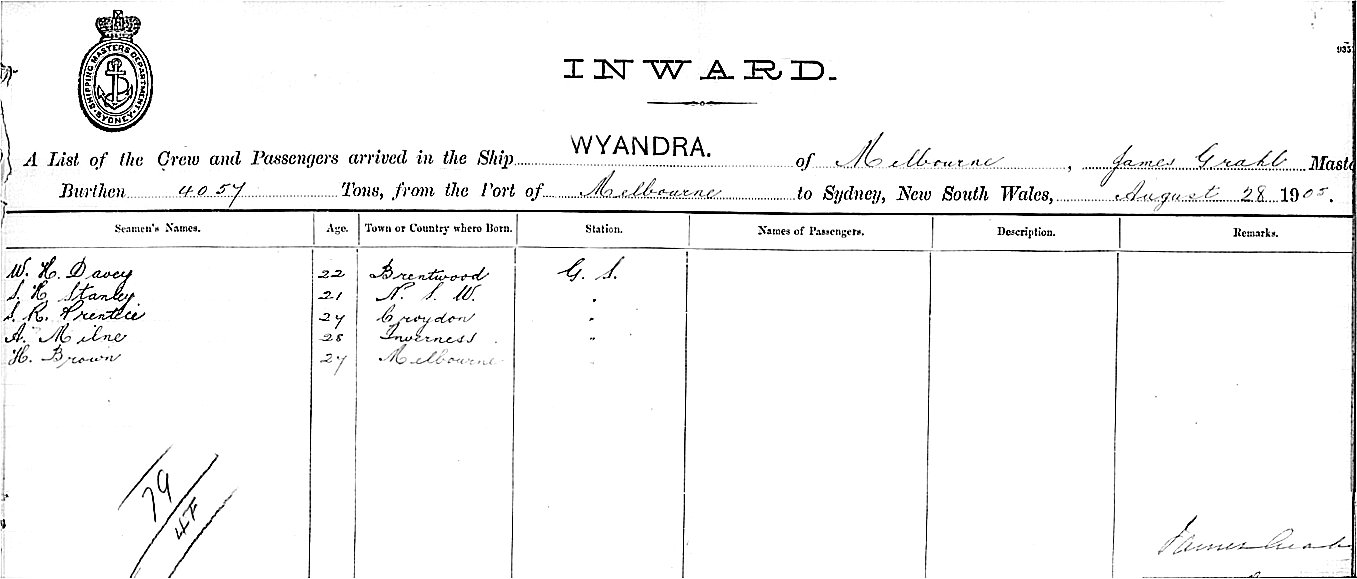 SHIPPING MASTERS DEPARTMENT
SYDNEY
INWARD.
A List of the Crew and Passengers arrived in the Ship WYANDRA. of Melbourne, James Grahl Maste
Burthen 4057 Tons, from the Port of Melbourne to Sydney, New South Wales, August 28 1905.
Seamen's Names. Age. Town or Country where Born. Station. Names of Passengers. Description. Remarks.
W. H. Davey 22 Brentwood G. S.
S. H Stanley 21 N. S. W. "
S. R. Prentice 27 Croydon "
A. Milne 28 Inverness "
H. Brown 27 Melbourne "
79
4F
James Grah